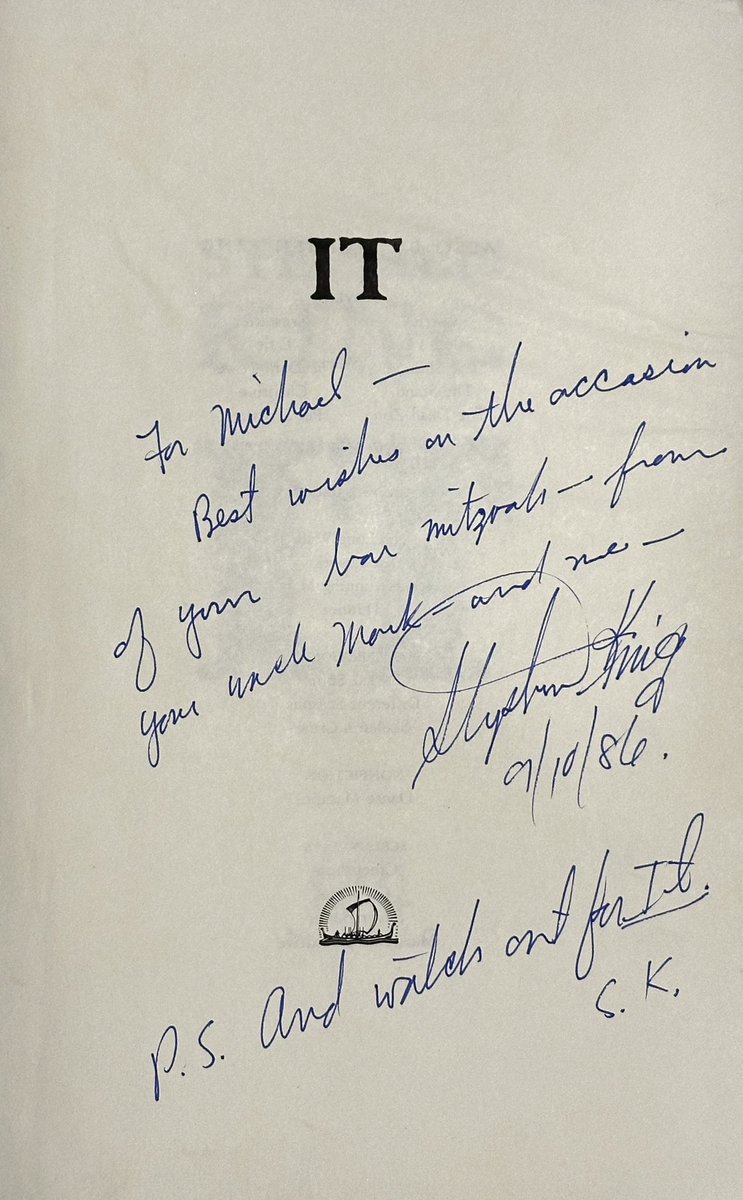 IT
For Michael —
Best wishes on the occasion
of your bar mitzvah — from
your uncle Mark — and me —
Stephen King
9/10/86.
P.S. And watch out for It.
S. K.